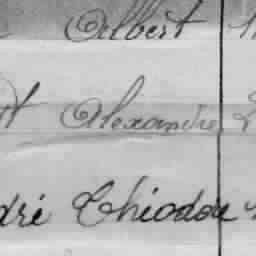 Albert
Alexandre
dré Chiodore